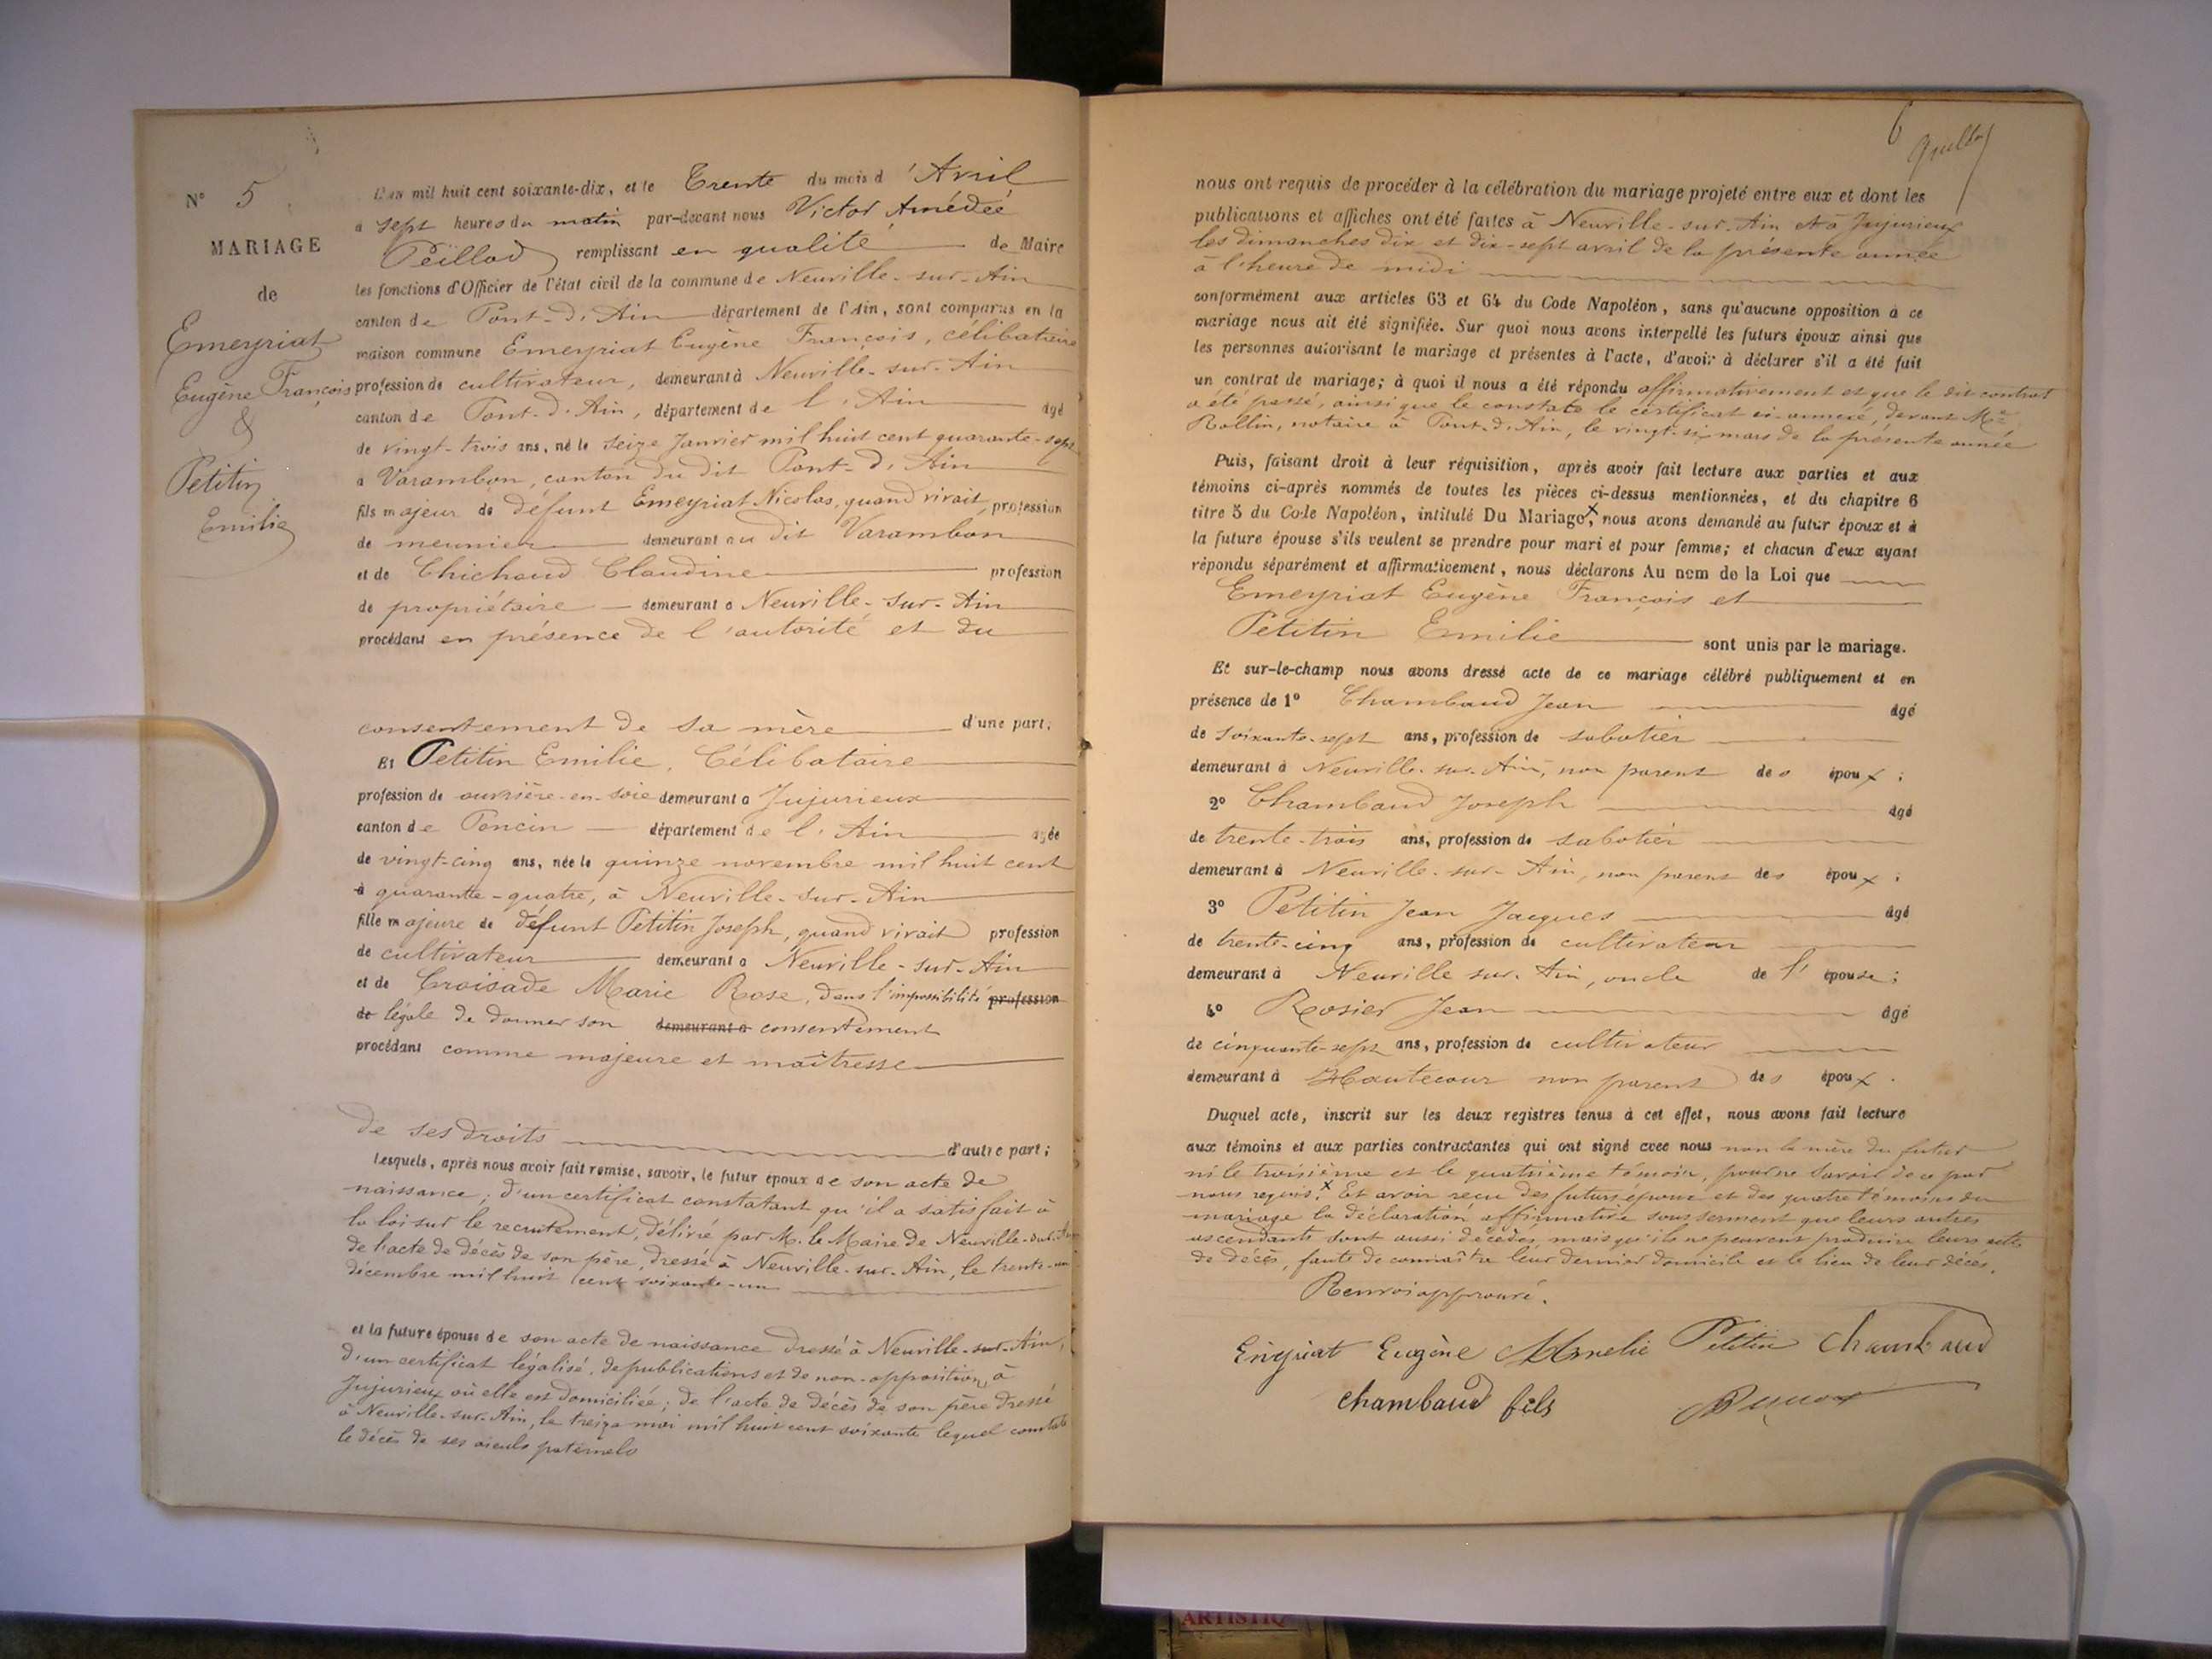 N° 5
MARIAGE
de
Emeyriat
Eugène François
&
Petitin
Emilie
L'an mil huit cent soixante-dix, et le Trente du mois d'Avril
à sept heures du matin par-devant nous Victor Amédée
Péillod remplissant en qualité de Maire
les fonctions d'Officier de l'état civil de la commune de Neuville-sur-Ain
canton de Pont-d'Ain département de l'Ain, sont comparus en la
maison commune Emeyriat Eugène François, célibataire
profession de cultivateur, demeurant à Neuville-sur-Ain
canton de Pont-d'Ain, département de l'Ain âgé
de vingt-trois ans, né le seize Janvier mil huit cent quarante-sept
à Varambon, canton du dit Pont-d'Ain
fils majeur de défunt Emeyriat Nicolas, quand vivait, profession
de meunier demeurant au dit Varambon
et de Chichoud Claudine profession
de propriétaire demeurant à Neuville-sur-Ain
procédant en présence de l'autorité et du
consentement de sa mère d'une part;
Et Petitin Emilie, Célibataire
profession de ouvrière-en-soie demeurant à Jujurieux
canton de Poncin département de l'Ain âgée
de vingt-cinq ans, née le quinze novembre mil huit cent
à quarante-quatre, à Neuville-sur-Ain
fille majeure de défunt Petitin Joseph, quand vivait profession
de cultivateur demeurant à Neuville-sur-Ain
et de Croisade Marie Rose, dans l'impossibilité profession
de légale de donner son demeurant à consentement
procédant comme majeure et maîtresse
de ses droits d'autre part;
Lesquels, après nous avoir fait remise, savoir, le futur époux de son acte de
naissance; d'un certificat constatant qu'il a satisfait à
la loi sur le recrutement, délivré par M. le Maire de Neuville-sur-Ain
de l'acte de décès de son père, dressé à Neuville-sur-Ain, le trente-un
décembre mil huit cent soixante-un
et la future épouse de son acte de naissance dressé à Neuville-sur-Ain,
d'un certificat légalisé, de publications et de non-opposition, à
Jujurieux où elle est domiciliée; de l'acte de décès de son père dressé
à Neuville-sur-Ain, le treize mai mil huit cent soixante lequel constate
le décès de ses aïeuls paternels
6
nous ont requis de procéder à la célébration du mariage projeté entre eux et dont les
publications et affiches ont été faites à Neuville-sur-Ain et à Jujurieux
les dimanches dix et dix-sept avril de la présente année
à l'heure de midi
conformément aux articles 63 et 64 du Code Napoléon, sans qu'aucune opposition à ce
mariage nous ait été signifiée. Sur quoi nous avons interpellé les futurs époux ainsi que
les personnes autorisant le mariage et présentes à l'acte, d'avoir à déclarer s'il a été fait
un contrat de mariage; à quoi il nous a été répondu affirmativement et que le dit contrat
a été passé, ainsi que le constate le certificat ci-annexé, devant Me
Rollin, notaire à Pont-d'Ain, le vingt-six mars de la présente année
Puis, faisant droit à leur réquisition, après avoir fait lecture aux parties et aux
témoins ci-après nommés de toutes les pièces ci-dessus mentionnées, et du chapitre 6
titre 5 du Code Napoléon, intitulé Du Mariage, x nous avons demandé au futur époux et à
la future épouse s'ils veulent se prendre pour mari et pour femme; et chacun d'eux ayant
répondu séparément et affirmativement, nous déclarons Au nom de la Loi que
Emeyriat Eugène François et
Petitin Emilie sont unis par le mariage.
Et sur-le-champ nous avons dressé acte de ce mariage célébré publiquement et en
présence de 1° Chambaud Jean âgé
de soixante-sept ans, profession de sabotier
demeurant à Neuville-sur-Ain, non parent des époux;
2° Chambaud Joseph âgé
de trente-trois ans, profession de sabotier
demeurant à Neuville-sur-Ain, non parent des époux;
3° Petitin Jean Jacques âgé
de trente-cinq ans, profession de cultivateur
demeurant à Neuville sur-Ain, oncle de l'épouse;
4° Rosier Jean âgé
de cinquante-sept ans, profession de cultivateur
demeurant à Hautecour non parent des époux.
Duquel acte, inscrit sur les deux registres tenus à cet effet, nous avons fait lecture
aux témoins et aux parties contractantes qui ont signé avec nous non la mère du futur
ni le troisième et le quatrième témoin, pour ne savoir de ce par
nous requis. x Et avoir reçu des futurs époux et des quatre témoins du
mariage la déclaration affirmative sous serment que leurs autres
ascendants sont aussi décédés mais qu'ils ne peuvent produire leurs actes
de décès, faute de connaître leur dernier domicile et le lieu de leur décès.
Renvoi approuvé.
Eugène Petitin Chambaud
chambaud fils
ARTISTIQ